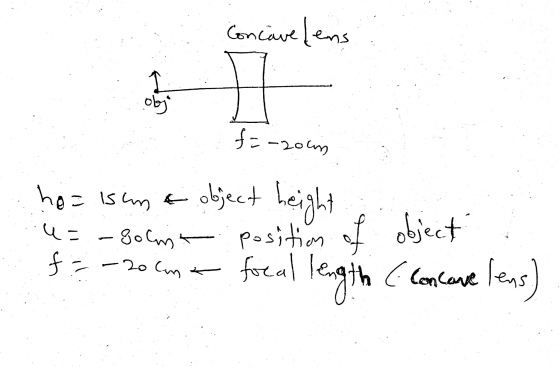 Concave lens
obj
f = -20cm
ho = 15cm ← object height
u = -80cm ← position of object
f = -20cm ← focal length (concave lens)